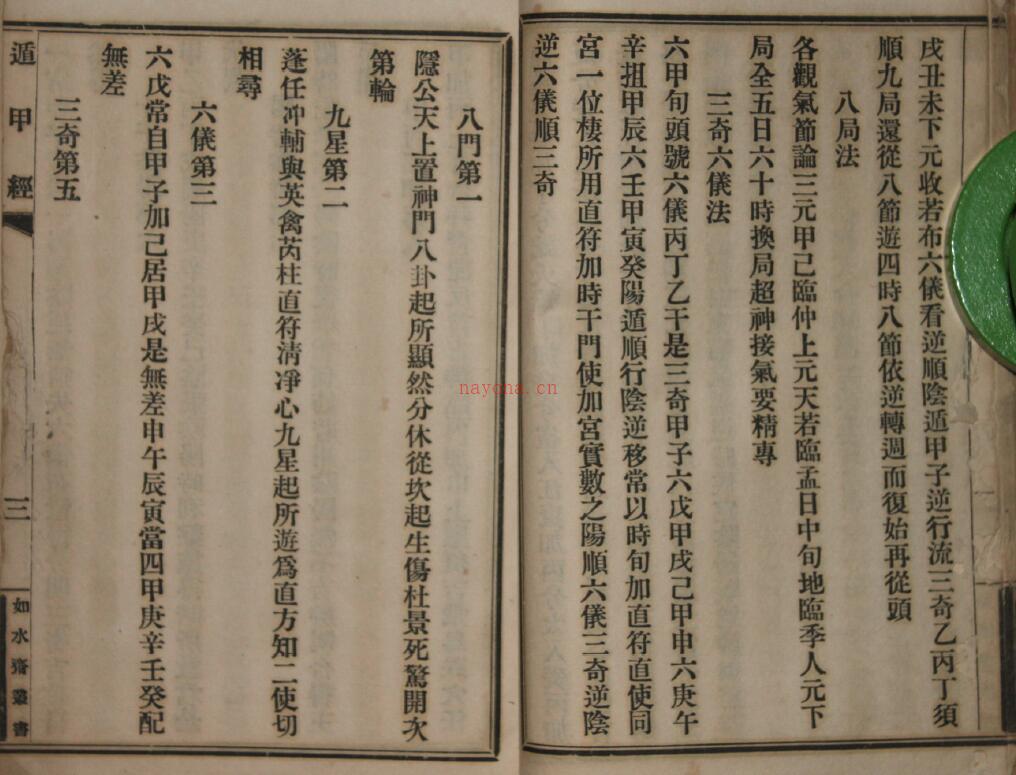 戌丑未下元收若布六儀看逆順陰遁甲子逆行流三奇乙丙丁須
順九局還從八節遊四時八節依逆轉週而復始再從頭
八局法
各觀氣節論三元甲己臨仲上元天若臨孟日中旬地臨季人元下
局全五日六十時換局超神接氣要精專
三奇六儀法
六甲旬頭號六儀丙丁乙干是三奇甲子六戊甲戌己甲申六庚午
辛扭甲辰六壬甲寅癸陽遁順行陰逆移常以時旬加直符直使同
宮一位棲所用直符加時干門使加宮實數之陽順六儀三奇逆陰
逆六儀順三奇
八門第一
隱公天上置神門八卦起所顯然分休從坎起生傷杜景死驚開次
第輪
九星第二
蓬任冲輔與英禽芮柱直符清凈心九星起所遊為直方知二使切
相尋
六儀第三
六戊常自甲子加己居甲戌是無差申午辰寅當四甲庚辛壬癸配
無差
三奇第五
遁甲經
三
如水齋叢書
nayona.cn